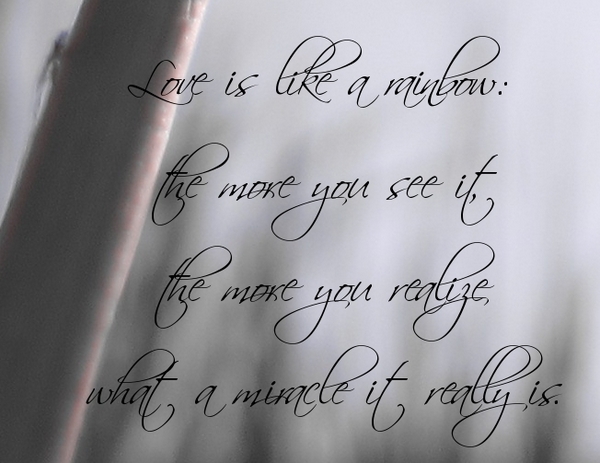 Love is like a rainbow:
the more you see it,
the more you realize,
what a miracle it really is.